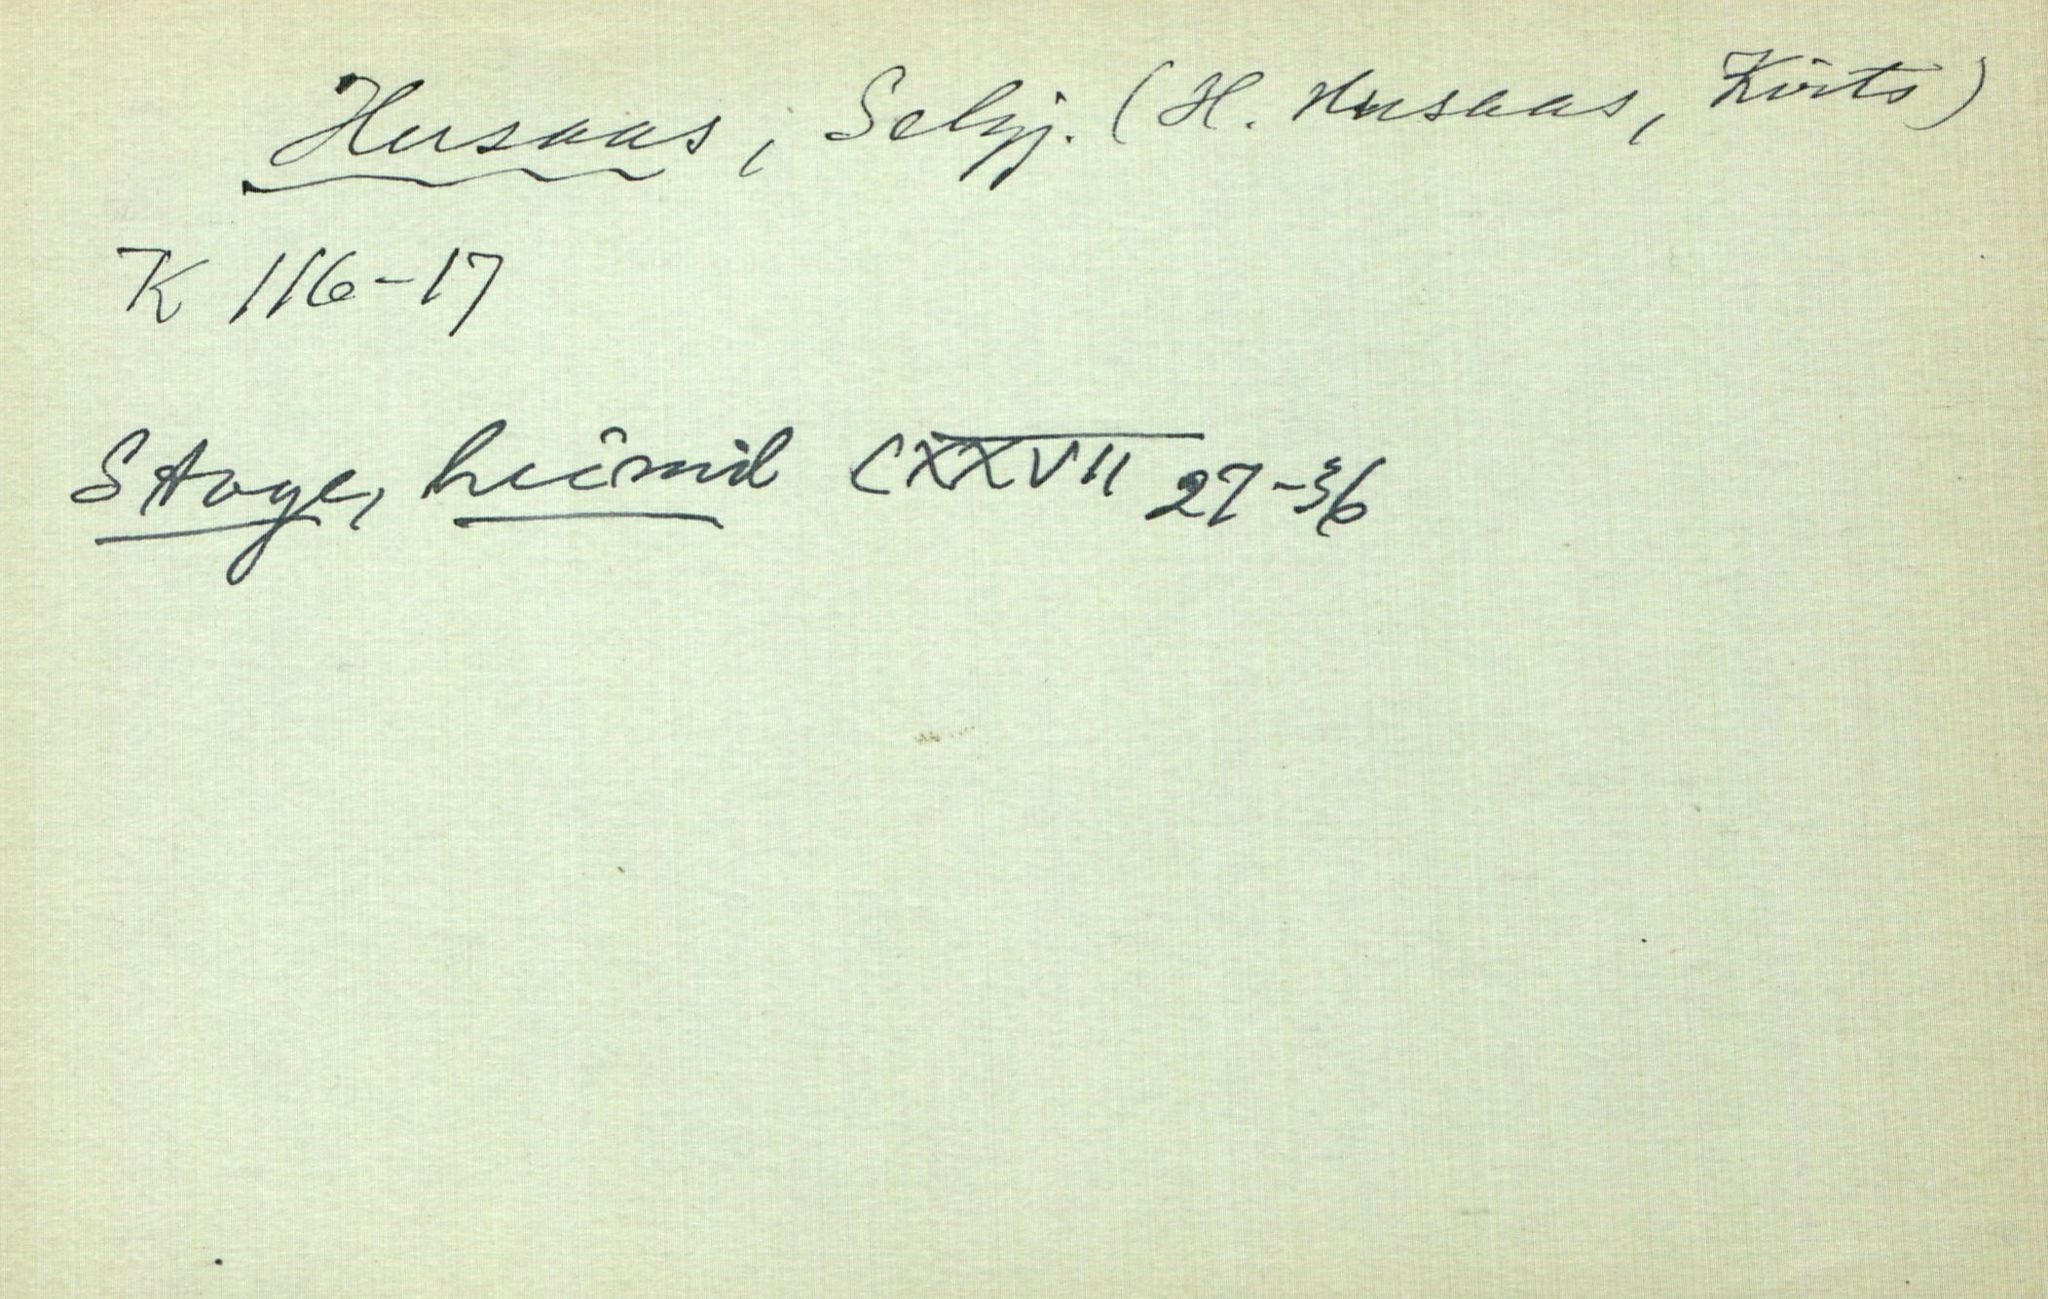 Husaas, Selbj. (H. Husaas, Kirts)
K 116-17
Skoge, heimil CXXVII 27-36